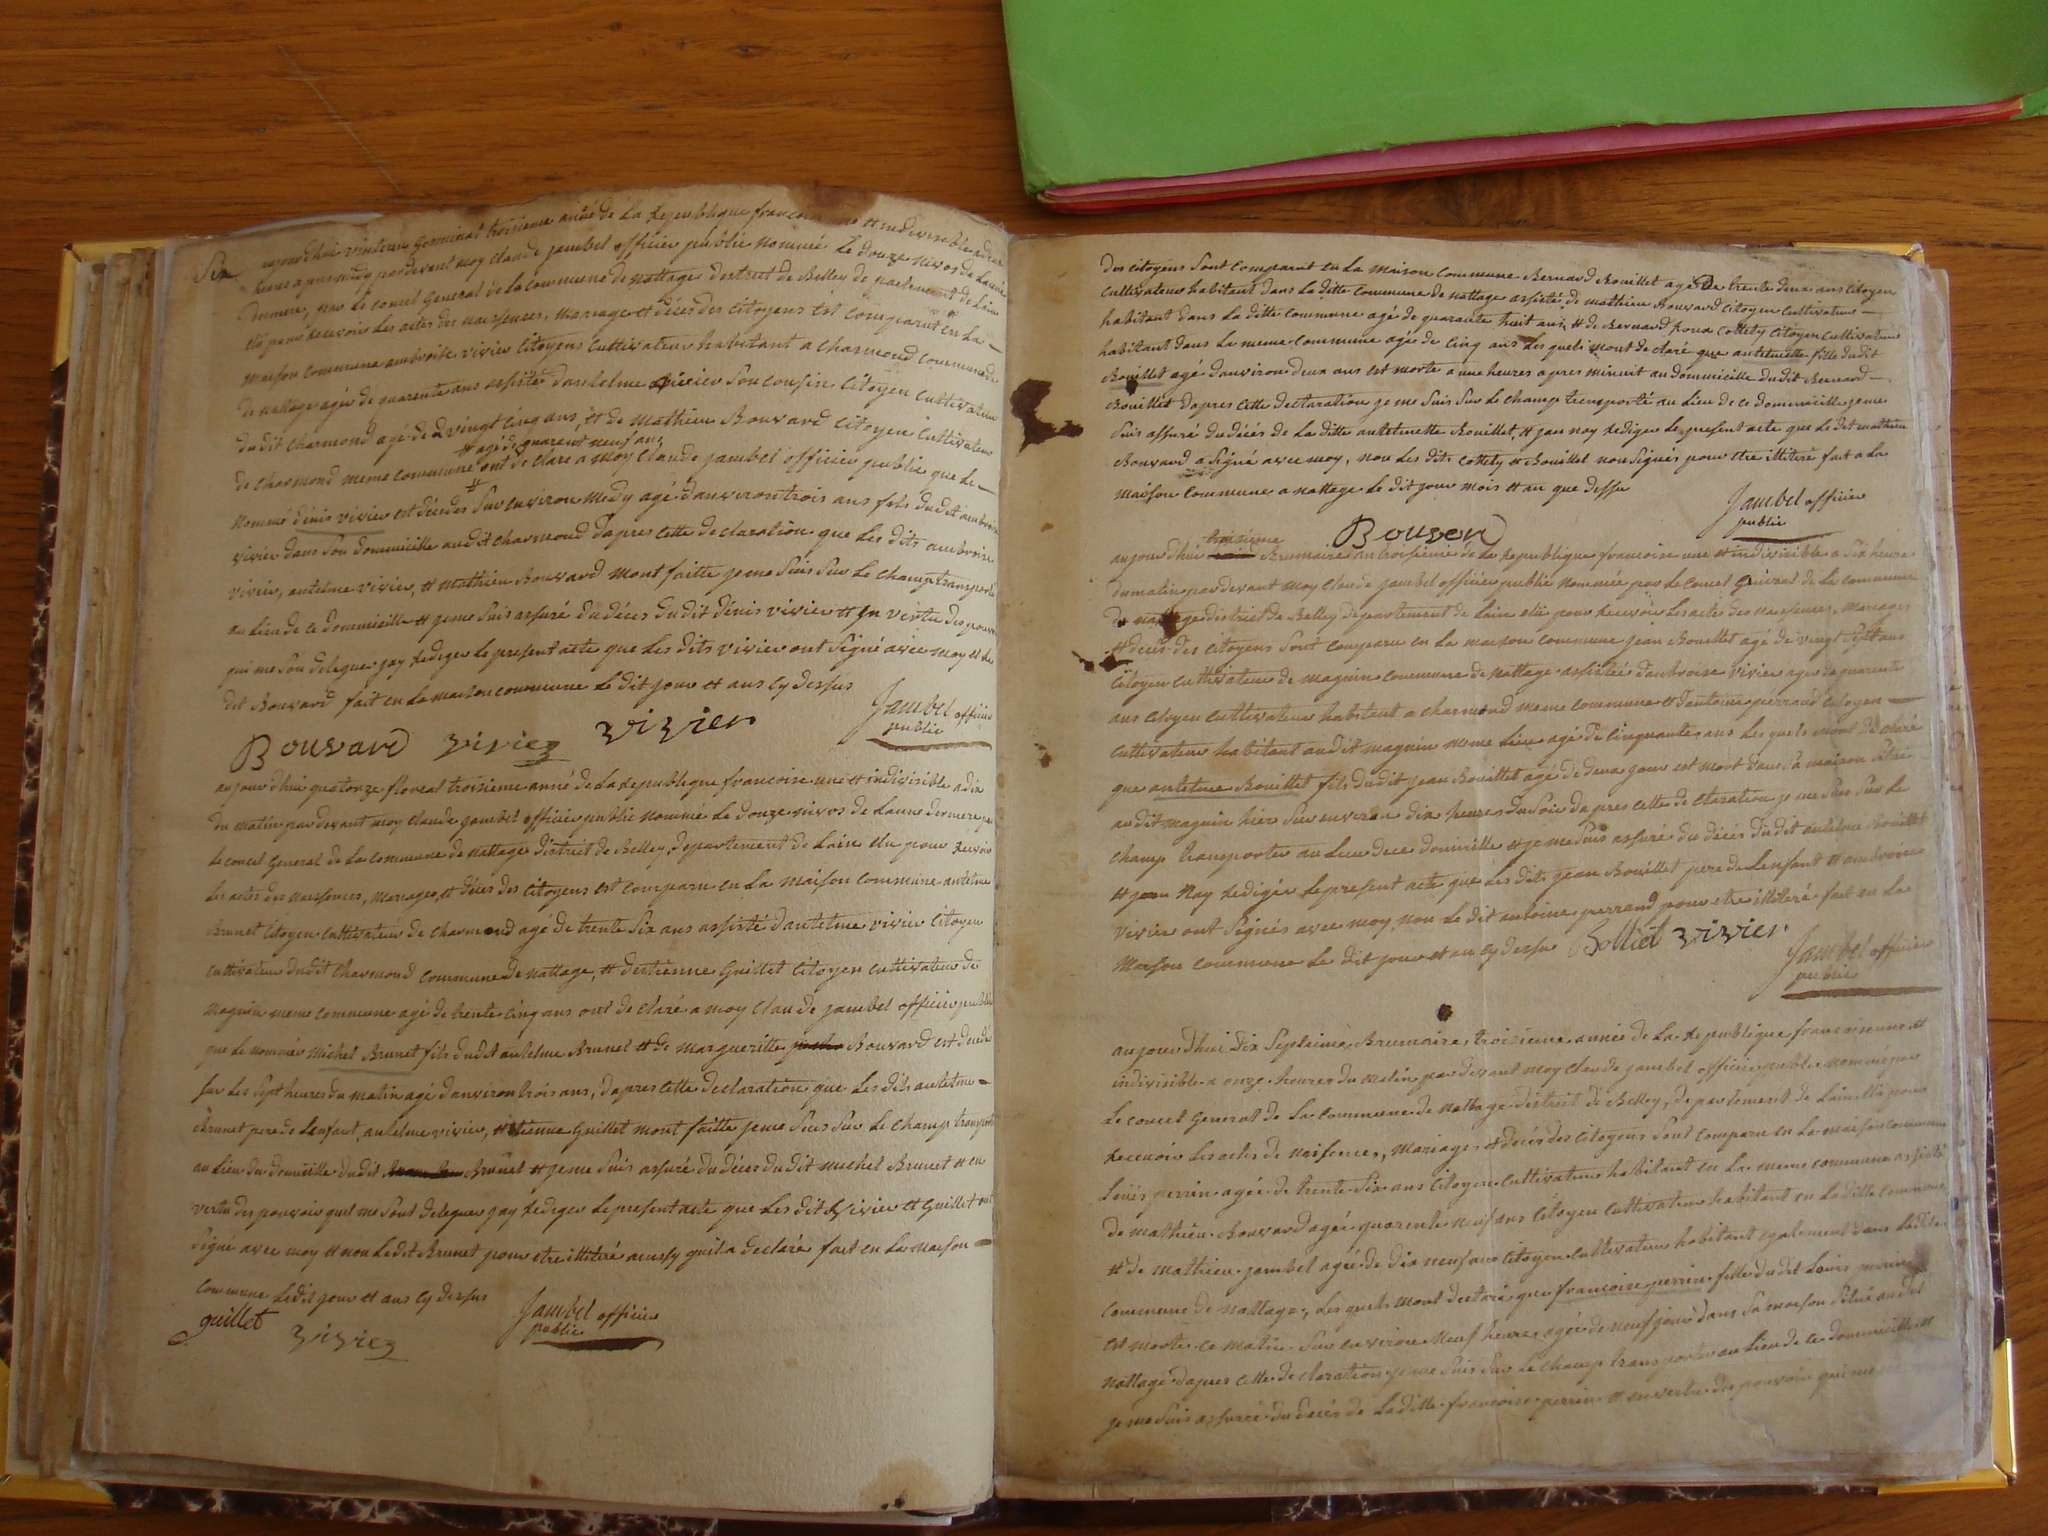 Six
aujourdhui vintcin germinal troisieme anné de La Republique francoise une et indivisible a deux
heure apres midy par devant moy Claude jambel officier public nommé Le douze nivos de Lannee
derniere, par Le conseil General de la commune de nattage destrict de Belley departement de Lain
elu pour recevoir Les actes des naissences, mariage et décés des citoyens est comparut en La —
maison commune ambroise vivier citoyens cultivateur habitant a charmond commune
de nattage agée de quarente ans assisté dantelme vivier son cousin citoyen cultivateur
du dit charmond agé de vingt cinq ans, et de mathieu Bouvard citoyen cultivateur
# agé de quarent neuf ans
de charmond meme commune # ont declare a moy Claude jambel officier public que Le —
Nommé dénis vivier est décédes sur environ medy agé danviron trois ans fils du dit ambroise
vivier dans son dommicille audit charmond dapres cette declaration que Les dits ambroise
vivier, antelme vivier, et mathieu Bouvard mont faitte je me suis sur Le champ transporté
au Lieu de ce dommicille et je me suis assuré du décés du dit dénis vivier et en vertu des pouvoir
qui me son delegue jay rediger Le present acte que Les dits vivier ont signé avec moy et Le
dit Bouvard fait en La maison commune Le dit jour et ans cy dessus
Jambel officier
public
Bouvard vivier vivier
aujourdhui quatorze floreal troisieme anné de La Republique francoise une et indivisible a dix
du matin par devant moy Claude jambel officier public nommé Le douze nivos de Lanne derniere par
Le conseil General de La commune de nattage district de Belley, departement de Lain elu pour recevoir
Les actes des naissences, mariages, et décés des citoyens est comparu en La maison commune antelme
Brunet citoyen cultivateur de charmond agé de trente six ans assisté dantelme vivier citoyen
cultivateur dudit charmond commune de nattage, et destienne Guillet citoyen cultivateur de
magnin meme commune agé de trente cinq ans ont declaré a moy Claude jambel officier public
que Le nommée michel Brunet fils dudit antelme Brunet et de margueritte Bouvard est décédé
sur Les sept heures du matin agé danviron trois ans, dapres cette declaration que Les dits antelme —
Brunet pere de Lenfant, antelme vivier, et etienne Guillet mont faitte je me suis sur Le champ transporté
au Lieu du domicille du dit Brunet et je me suis assuré du décés du dit michel Brunet et en
vertu des pouvoir quil me sont deleguer jay rediger Le present acte que Les dit vivier et Guillet ont
signé avec moy et non Le dit Brunet pour etre illitéré aussy quil a declaré fait en La maison —
commune Ledit jour et ans cy dessus
guillet vivier Jambel officier
public
des citoyens sont comparut en La maison commune Bernard Bouillet agé de trente deux ans citoyen
cultivateur habitant dans La ditte commune de nattage assisté, de mathieu Bouvard citoyen cultivateur —
habitant dans La ditte commune agé de quarante huit ans, et de Bernard cottety citoyen cultivateur
habitant dans La meme commune agée de cinq ans Les quels mont declaré que antelmette fille dudit
Bouillet agé danviron deux ans est morte a une heures apres minuit au dommicille du dit Bernard —
Bouillet dapres cette declaration je me suis sur Le champ transporté au Lieu de ce dommicille je me
suis assuré du décés de La ditte antelmette Bouillet, et jan nay rediger Le present acte que Le dit mathieu
Bouvard a signé avec moy, non Les dits cottety et Bouillet non signés pour etre illitéré fait a La
maison commune a nattage Le dit jour mois et an que dessu
Jambel officier
public
Bouvard
troisieme
aujourdhui Brumaire an troisieme de La Republique francoise une et indivisible a six heure
du matin par devant moy Claude jambel officier public nommée par Le conseil Général de La commune
de nattage district de Belley departement de Lain elü pour recevoir Les actes des naissences, mariages
et décés des citoyens sont comparu en La maison commune jean Bouillet agé de vingt sept ans
citoyen cultivateur de magnin commune de nattage assistée dambroise vivier agé de quarente
ans citoyen cultivateur habitant a charmond meme commune et dantoine perraud citoyen —
cultivateur habitant audit magnin meme Lieu agé de cinquante ans Les quels mont declaré
que antelme Bouillet fils du dit jean Bouillet agé de deux jour est mort dans sa maison située
audit magnin hier sur environ dix heures du soir dapres cette declaration je me suis sur Le
champ transporter au Lieu de ce domicille et je me suis assuré du décés du dit antelme Bouillet
et jean Nay rediger Le present acte que Les dits jean Bouillet pere de Lenfant et ambroise
vivier ont signés avec moy non Le dit antoine perraud pour etre illitéré fait en La
maison commune Le dit jour et an cy dessu Bolliet vivier
Jambel officier
public
aujourdhui dix septieme Brumaire, troisieme année de La Republique francoise une et
indivisible a onze heures du matin par devant moy Claude jambel officier public nommé par
Le conseil General de La commune de nattage district de Belley, departement de Lain elü pour
recevoir Les actes de naissences, mariages et décés des citoyens sont comparu en La maison commune
Loüis perrin agée de trente six ans citoyen cultivateur habitant en La meme commune assisté
de mathieu Bouvard agée quarente neuf ans citoyen cultivateur habitant en La ditte commune
et de mathieu jambel agée de dix neuf ans citoyen cultivateur habitant egalement dans Laditte
commune de nattage, Les quels mont declaré que francoise perrin fille du dit Louis perrin
est morte ce matin sur environ neuf heures agée de neuf jour dans sa maison situé audit
nattage dapres cette declaration je me suis sur Le champ transporter au Lieu de ce dommicille et
je me suis assurée du décés de La ditte francoise perrin et en vertu des pouvoir qui me